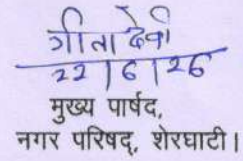 गीता देवी
22/6/26
मुख्य पार्षद,
नगर परिषद्, शेरघाटी।